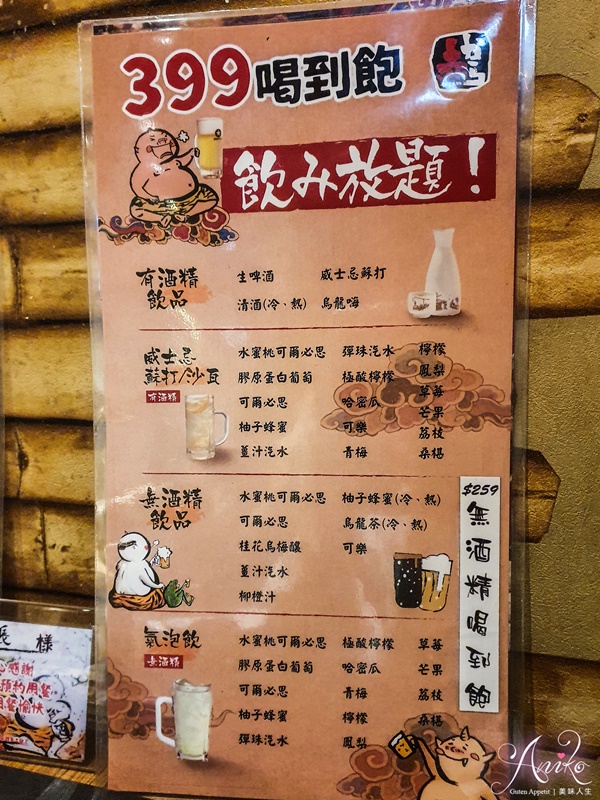 399喝到飽
飲み放題!
有酒精
飲品
生啤酒 威士忌蘇打
清酒(冷、熱) 烏龍嗨
威士忌
蘇打/沙瓦
有酒精
水蜜桃可爾必思 彈珠汽水 檸檬
膠原蛋白葡萄 極酸檸檬 鳳梨
可爾必思 哈密瓜 草莓
柚子蜂蜜 可樂 芒果
薑汁汽水 青梅 荔枝
桑椹
無酒精
飲品
水蜜桃可爾必思 柚子蜂蜜(冷、熱)
可爾必思 烏龍茶(冷、熱)
桂花烏梅釀 可樂
薑汁汽水
柳橙汁
$259
無酒精喝到飽
氣泡飲
無酒精
水蜜桃可爾必思 極酸檸檬 草莓
膠原蛋白葡萄 哈密瓜 芒果
可爾必思 青梅 荔枝
柚子蜂蜜 檸檬 桑椹
彈珠汽水 鳳梨
樣
感謝
預約用餐
用餐愉快
Aniko
Guten Appetit | 美味人生